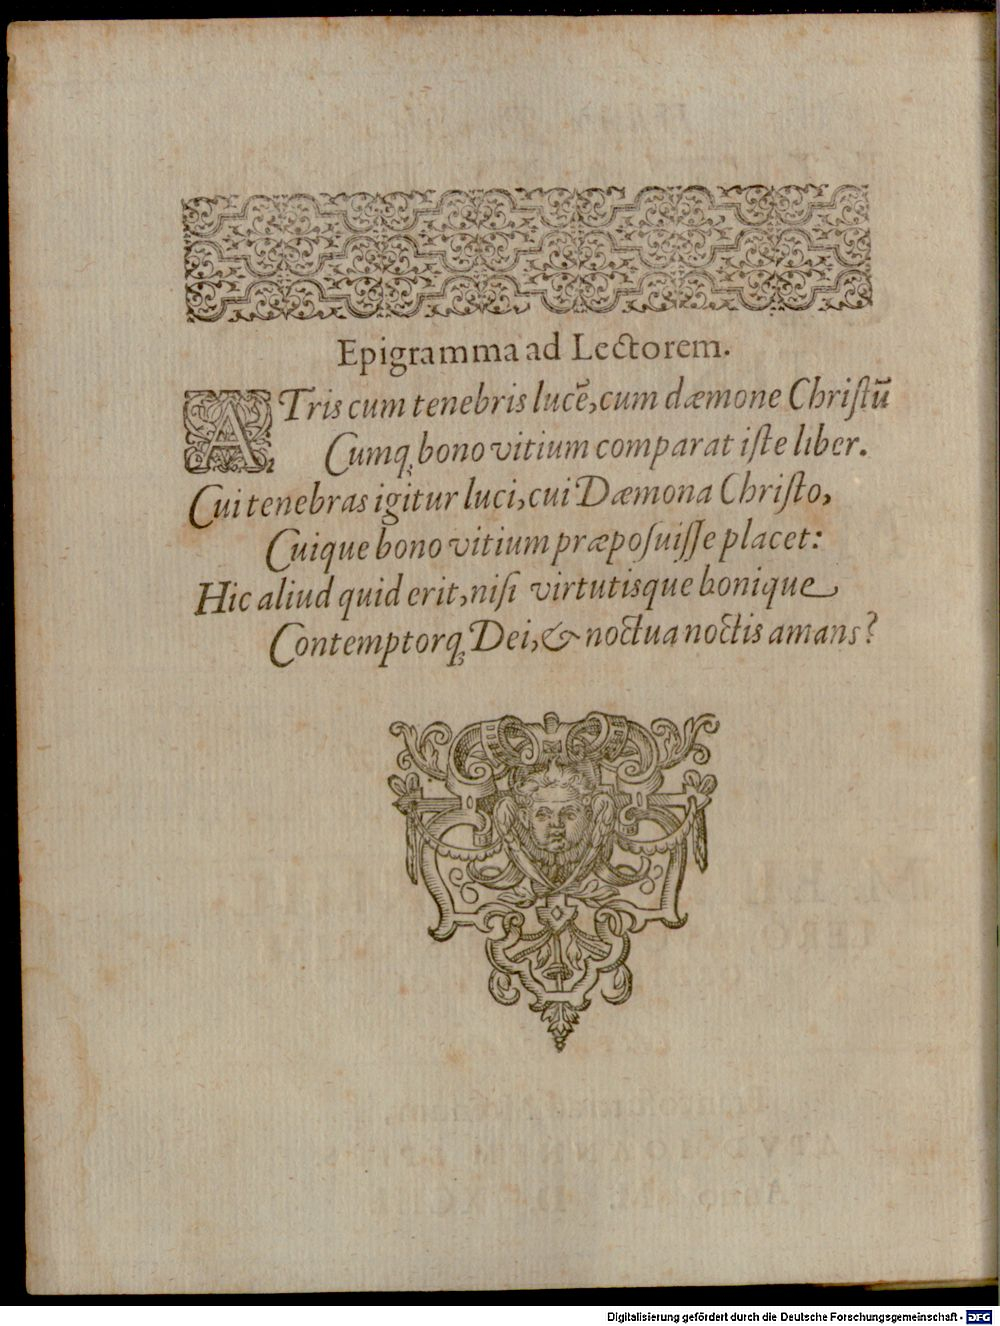 Epigramma ad Lectorem.
ATris cum tenebris lucē, cum dæmone Chriſtū
Cumq; bono vitium comparat iſte liber.
Cui tenebras igitur luci, cui Dæmona Chriſto,
Cuique bono vitium præpoſuiſſe placet:
Hic aliud quid erit, niſi virtutisque bonique
Contemptorq; Dei, & noctua noctis amans?
Digitalisierung gefördert durch die Deutsche Forschungsgemeinschaft - DFG